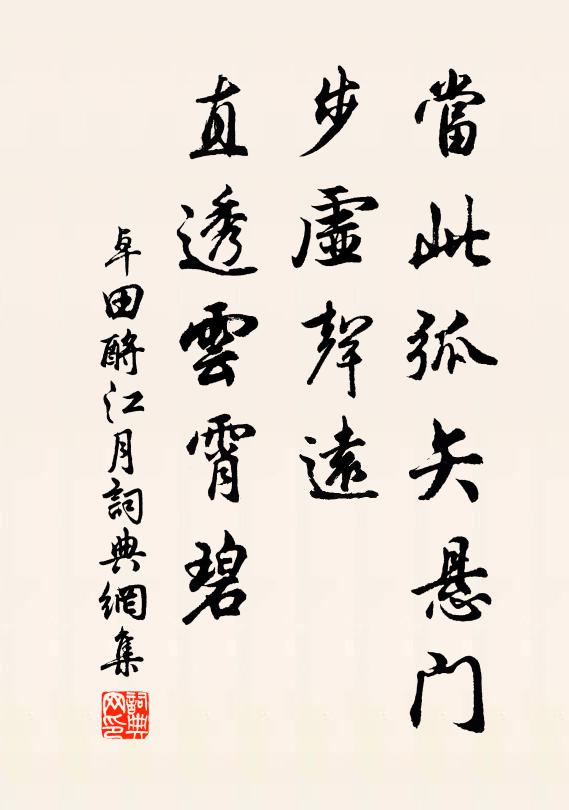 當此弧矢悬门
步虛聲遠
直透雲霄碧
卓田酹江月詞典網集
詞典网印